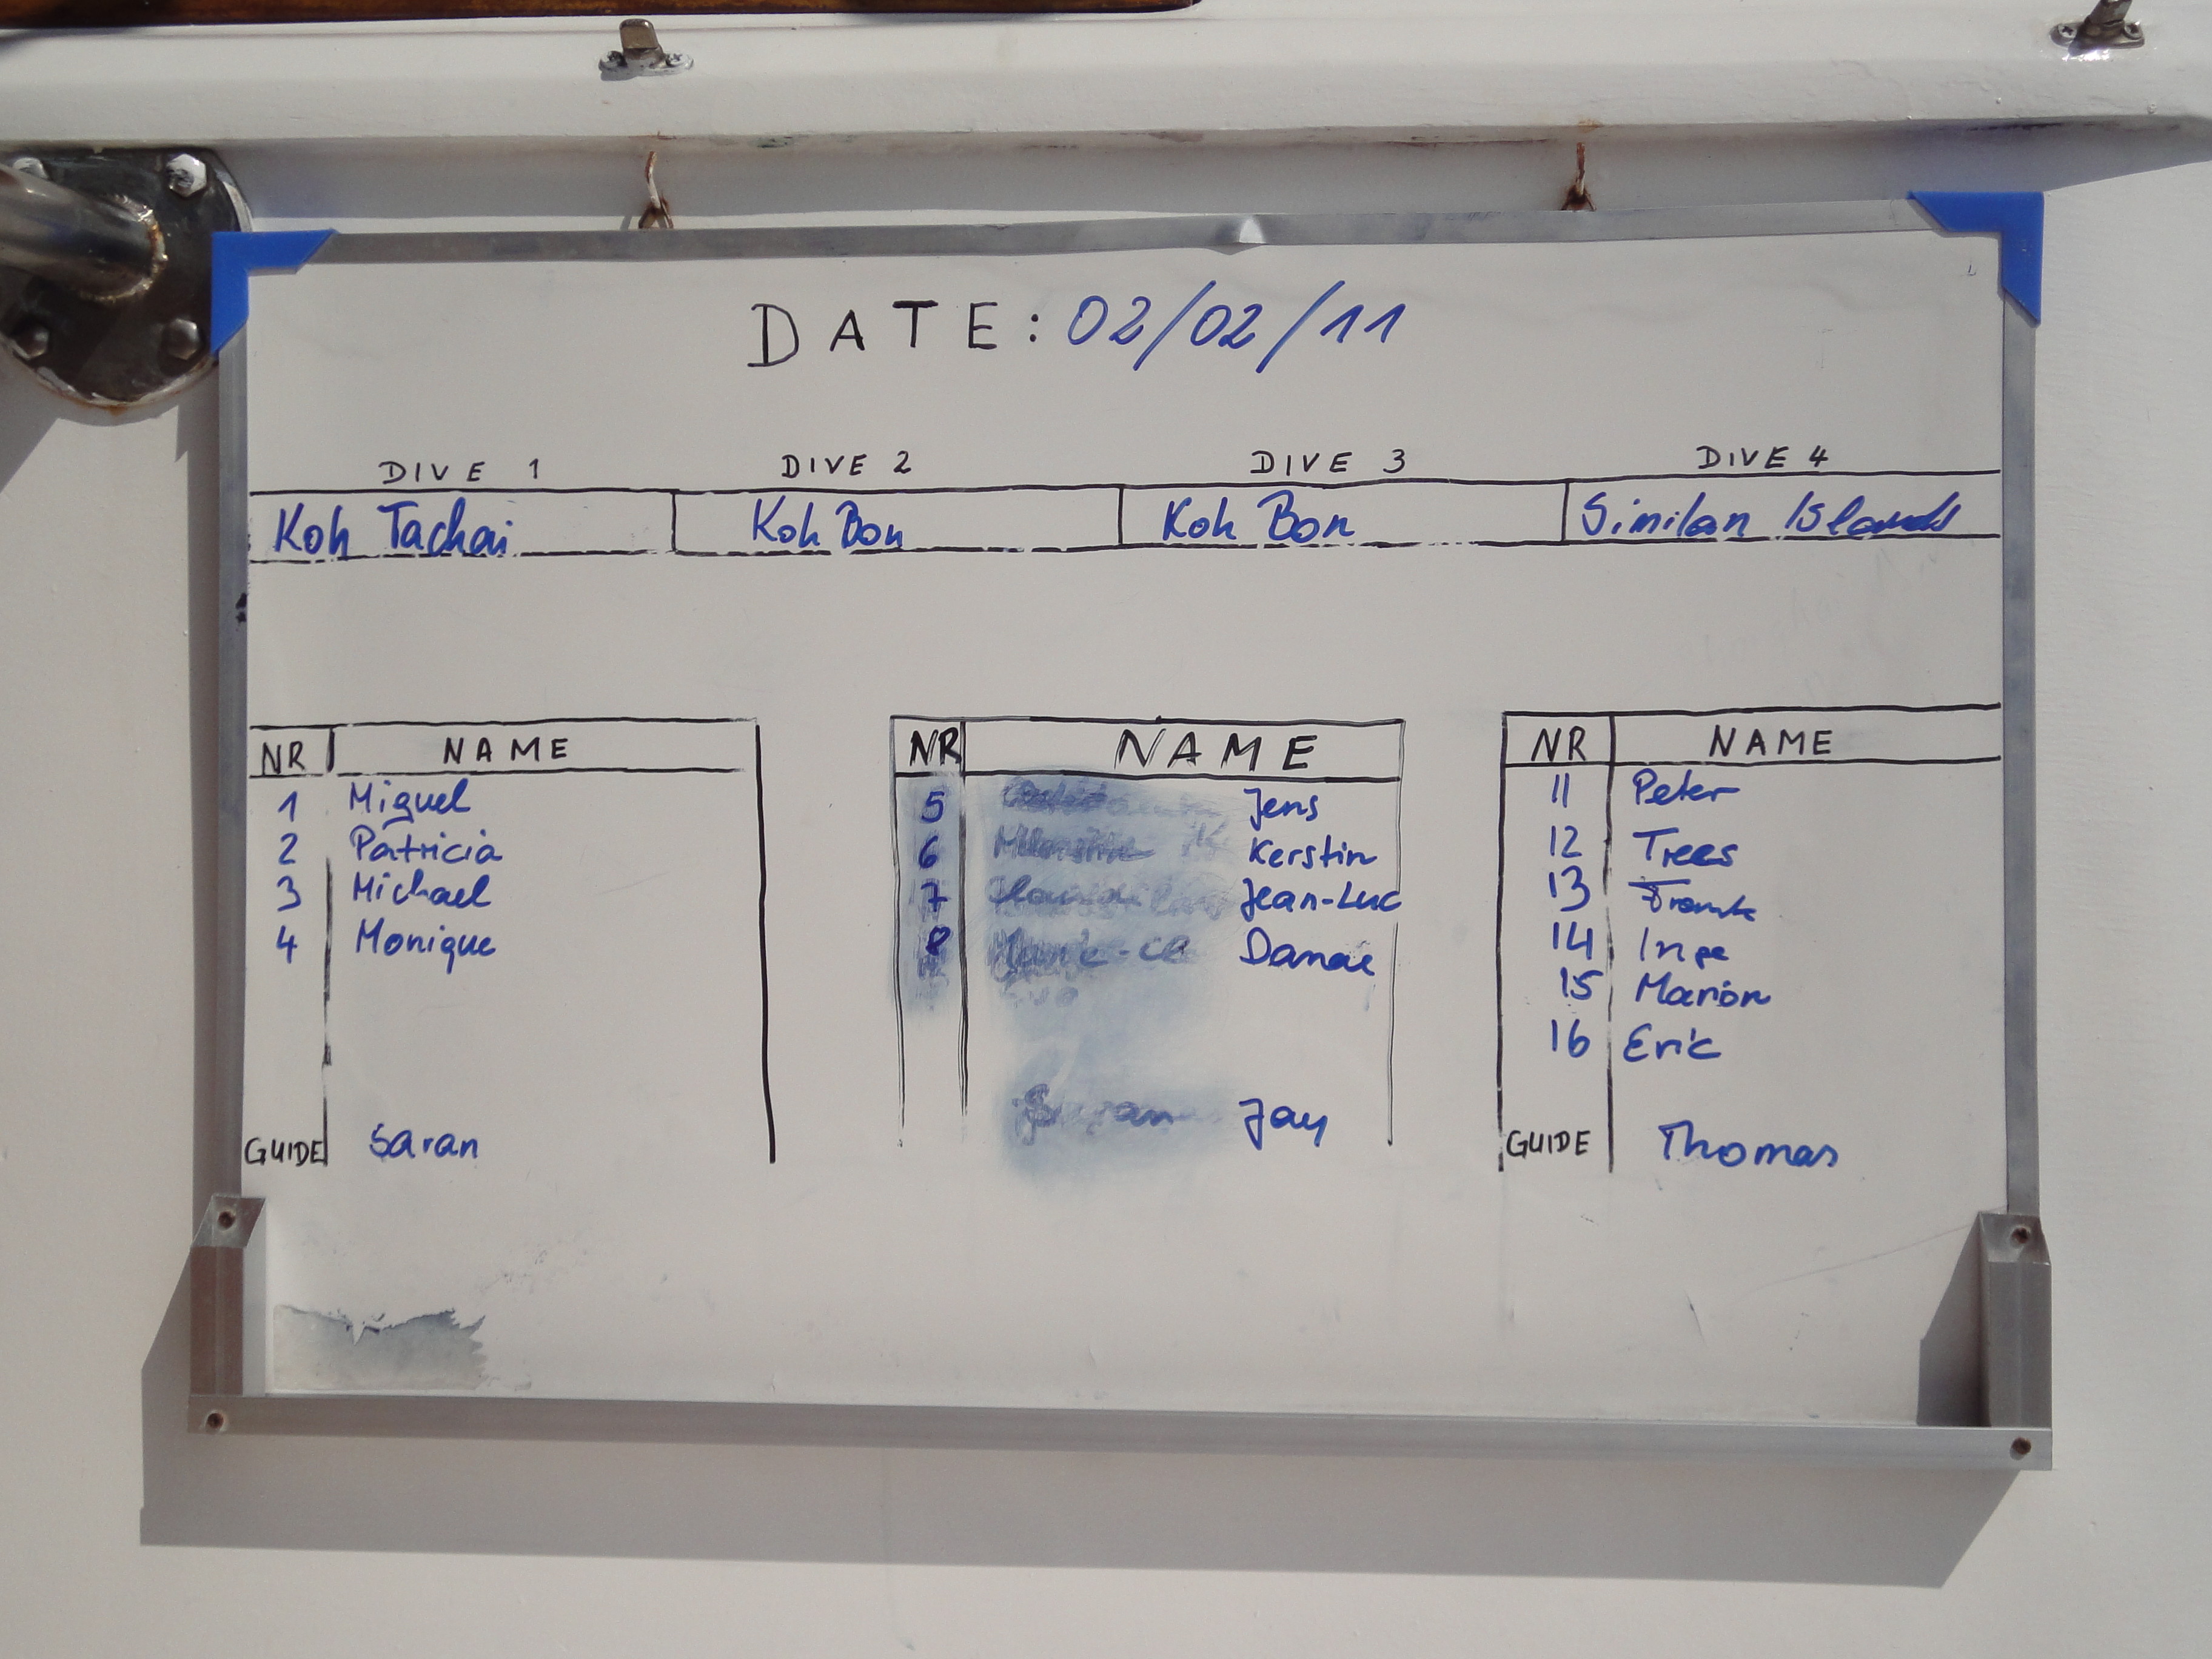 DATE: 02/02/11
DIVE 1 DIVE 2 DIVE 3 DIVE 4
Koh Tachai Koh Bon Koh Bon Similan Islands
NR NAME
1 Miguel
2 Patricia
3 Michael
4 Monique
GUIDE Saran
NR NAME
5 Jens
6 Kerstin
7 Jean-Luc
8 Danae
Jay
NR NAME
11 Peter
12 Trees
13 Frank
14 Inge
15 Marion
16 Eric
GUIDE Thomas